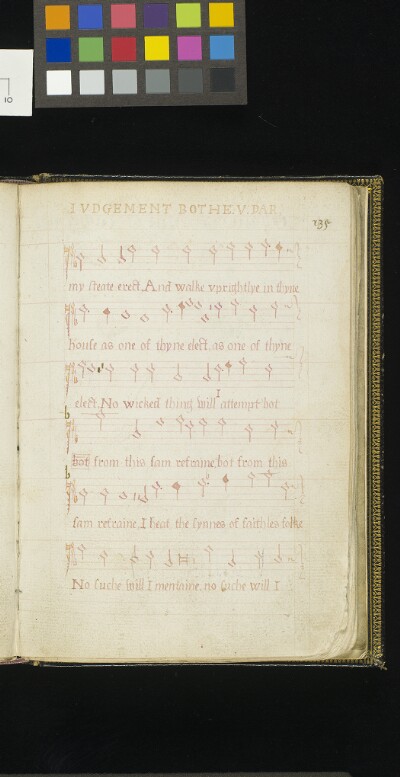 IVDGEMENT BOTHE.V.PAR
135
my steate erect. And walke vprightlye in thyne
house as one of thyne elect, as one of thyne
elect. No wicked thing will I attempt bot
bot from this sam refraine, bot from this
sam refraine. I heat the synnes of faithles folke
No suche will I mentaine. no suche will I
10